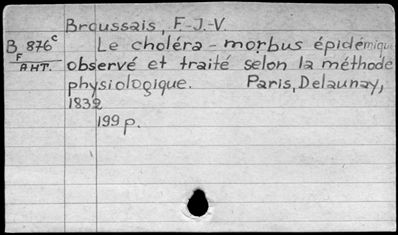 Broussais, F-J-V.
B 876c Le choléra-morbus épidémique
F observé et traité selon la méthode
AHT.
physiologique. Paris, Delaunay,
1832
199 p.